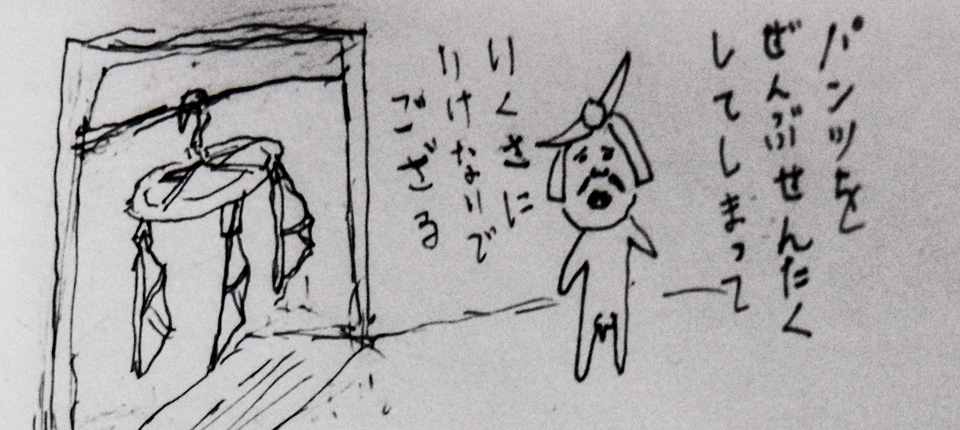 パンツを
ぜんぶせんたく
してしまって
いくさに
いけないで
ござる